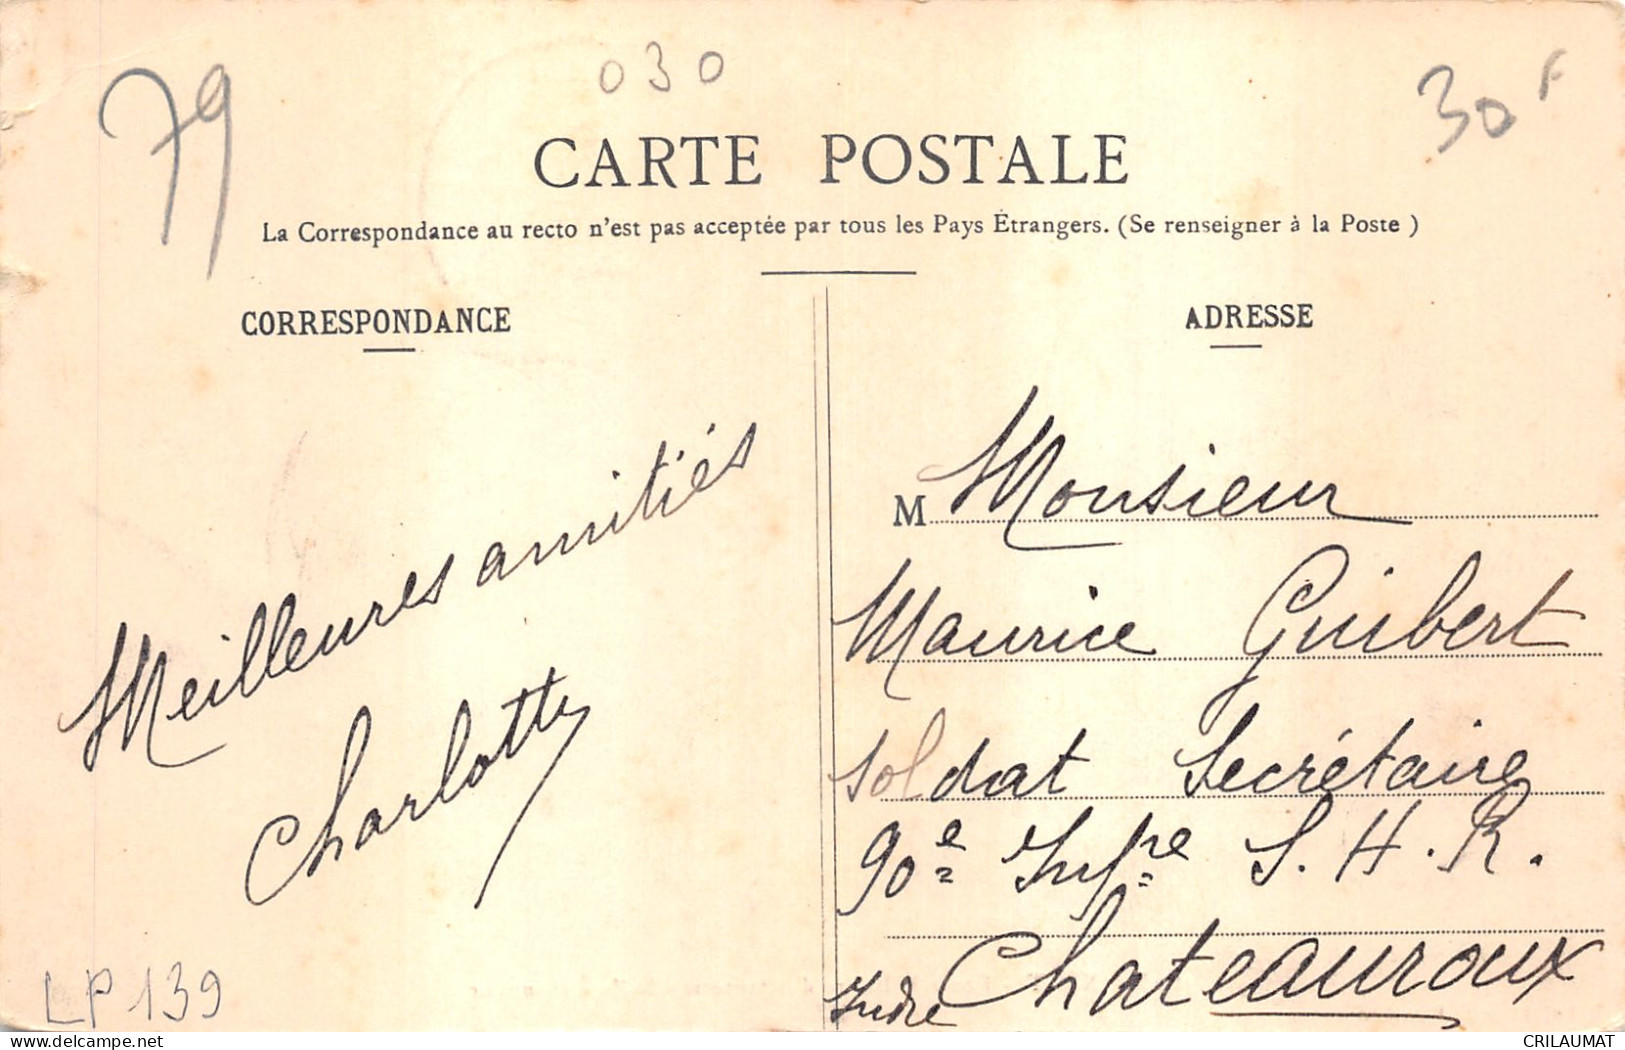 79
030
30F
CARTE POSTALE
La Correspondance au recto n'est pas acceptée par tous les Pays Étrangers. (Se renseigner à la Poste )
CORRESPONDANCE
Meilleures amitiés
Charlotte
LP 139
ADRESSE
M Monsieur
Maurice Guibert
soldat Secrétaire
90e Infre S. H. R.
Chateauroux
Indre
delcampe.net
CRILAUMAT